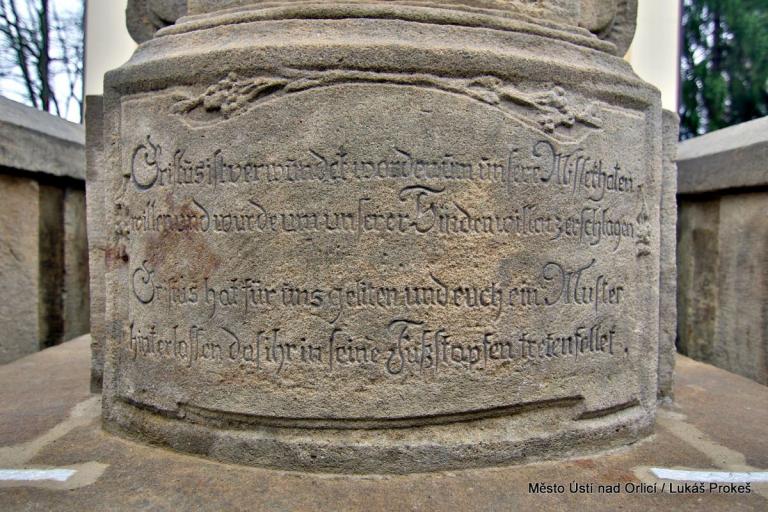 Cristüs ist verwundet worden üm ünser Missethaten
willen und wurde um unserer Sünden willen zerschlagen
Cristüs hat für üns geliten und euch ein Muster
hinterlossen das ihr in seine Fußstapfen treten sollet.
Město Ústí nad Orlicí / Lukáš Prokeš